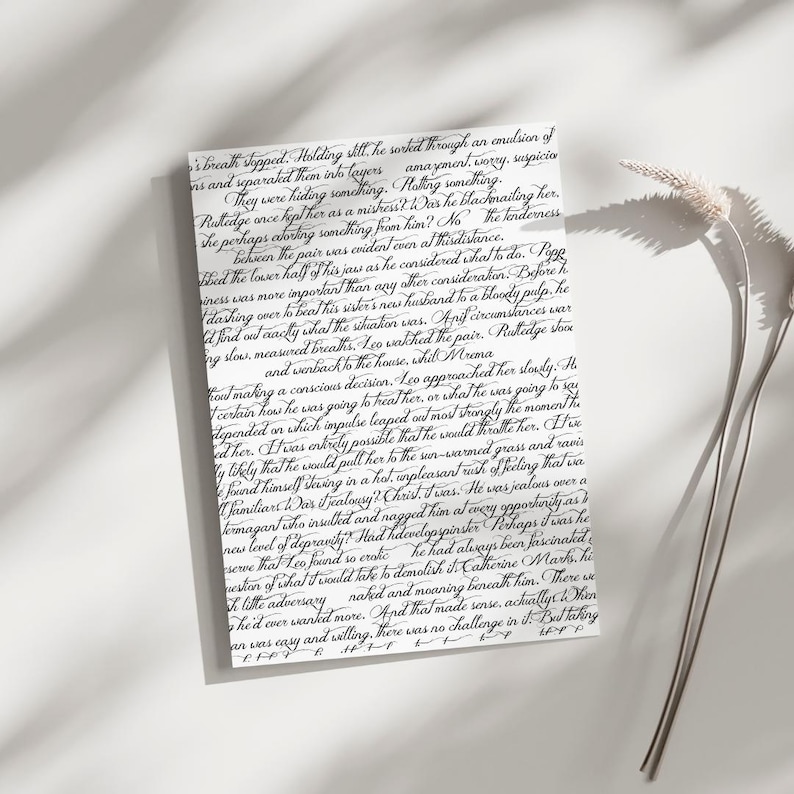 's breath stopped. Holding still, he sorted through an emulsion of
ns and separated them into layers amazement, worry, suspicio
They were hiding something. Hotting something.
Rutledge once kept her as a mistress? Was he blackmailing her,
she perhaps extorting something from him? No the tenderness
between the pair was evident even at thisdistance.
bbed the lower half of his jaw as he considered what to do. Popp
piness was more important than any other consideration. Before h
t dashing over to beat his sister's new husband to a bloody pulp, he
d find out exactly what the situation was. Anif circumstances war
ng slow, measured breaths, Leo watched the pair. Rutledge stood
and wenback to the house, whil Mrema
hout making a conscious decision, Leo approached her slowly. He
t certain how he was going to treat her, or what he was going to say
depended on which impulse leaped out most strongly the moment he
ed her. It was entirely possible that he would throttle her. It wa
ly likely that he would pull her to the sun-warmed grass and ravis
e found himself stewing in a hot, unpleasant rush of feeling that was
ll familiar. Was it jealousy? Christ, it was. He was jealous over a
termagant who insulted and nagged him at every opportunity.as th
new level of depravity? Had hdevelopspinster Perhaps it was he
eserve that Leo found so erotic he had always been fascinated
uestion of what it would take to demolish it. Catherine Marks, hi
sh little adversary naked and moaning beneath him. There wa
g he'd ever wanted more. And that made sense, actually. When
an was easy and willing, there was no challenge in it. But taking